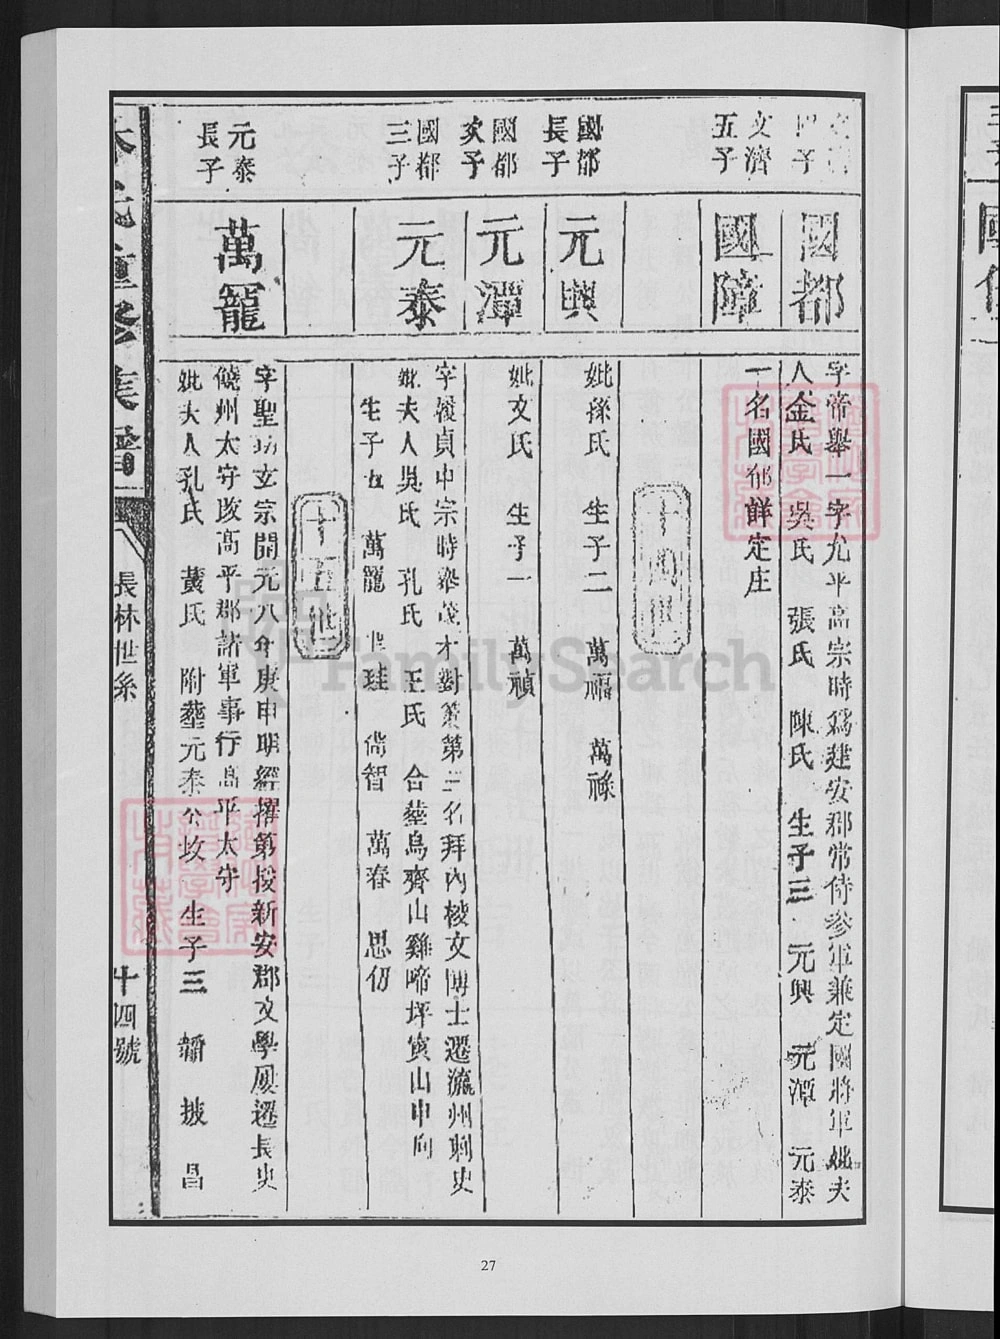 文濟
四子
國都
字帝舉一字允平高宗時爲建安郡常侍參軍兼定國將軍妣夫
人金氏 吳氏 張氏 陳氏 生子三 元興 元潭 元泰
文濟
五子
國障
一名國郁鮮定庄
十四世
國都
長子
元興
妣孫氏 生子二 萬福 萬祿
國都
次子
元潭
妣文氏 生子一 萬禎
國都
三子
元泰
字履貞中宗時舉茂才對策第三名拜內校文博士遷瀛州刺史
妣夫人吳氏 孔氏 王氏 合塟烏齊山雞啼坪寅山申向
生子五 萬寵 珪 儒智 萬春 思仞
十五世
元泰
長子
萬寵
字聖功玄宗開元八年庚申明經擢第授新安郡文學屢遷長史
饒州太守改高平郡諸軍事行高平太守
妣夫人孔氏 黃氏 附塟元泰公坟 生子三 韜 披 昌
林氏重修族譜
長林世系
十四號
27
FamilySearch